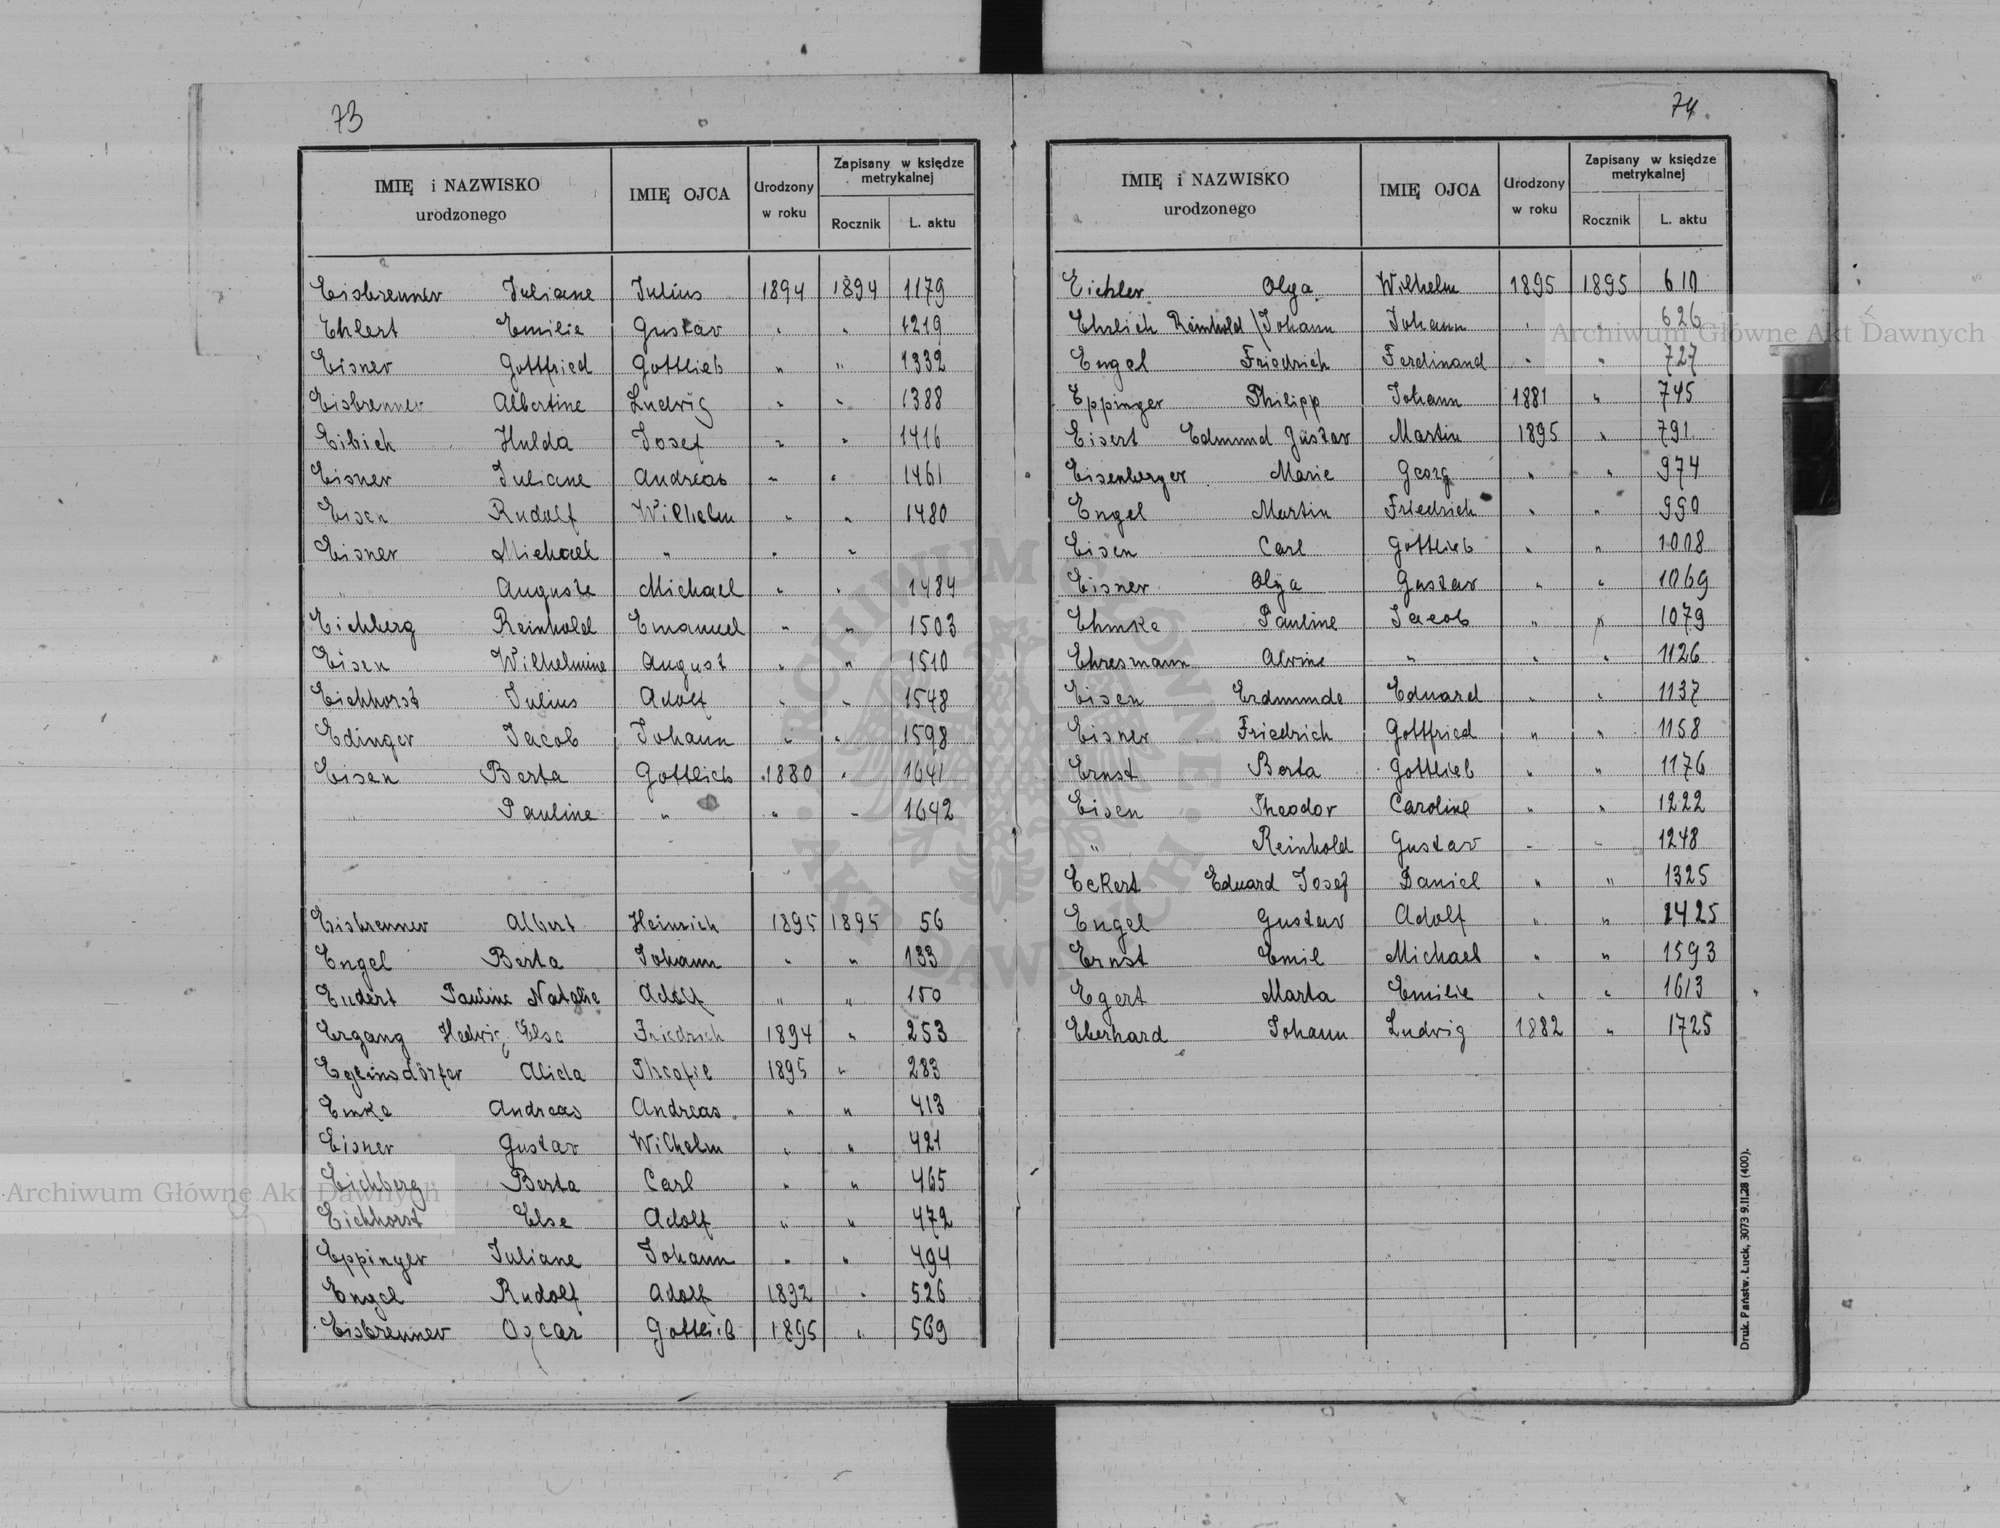 73
IMIĘ i NAZWISKO urodzonego IMIĘ OJCA Urodzony w roku Zapisany w księdze metrykalnej Rocznik L. aktu
Eisbrenner Juliane Julius 1894 1894 1179
Ehlert Emilie Gustav " " 1219
Eisner Gottfried Gottlieb " " 1332
Eisbrenner Albertine Ludvig " " 1388
Eibich Hulda Josef " " 1416
Eisner Juliane Andreas " " 1461
Eisen Rudolf Wilhelm " " 1480
Eisner Michael " " "
" Auguste Michael " " 1484
Eichberg Reinhold Emanuel " " 1503
Eisen Wilhelmine August " " 1510
Eichhorst Julius Adolf " " 1548
Edinger Jacob Johann " " 1598
Eisen Berta Gottlieb 1880 " 1641
" Pauline " " " 1642
Eisbrenner Albert Heinrich 1895 1895 56
Engel Berta Johann " " 133
Endert Pauline Natalie Adolf " " 150
Ergang Hedvig Else Friedrich 1894 " 253
Egleinsdörfer Alida Theofil 1895 " 283
Emke Andreas Andreas " " 413
Eisner Gustav Wilhelm " " 421
Eichberg Berta Carl " " 465
Eichhorst Else Adolf " " 472
Eppinger Juliane Johann " " 494
Engel Rudolf Adolf 1892 " 526
Eisbrenner Oscar Gottlieb 1895 " 569
74
IMIĘ i NAZWISKO urodzonego IMIĘ OJCA Urodzony w roku Zapisany w księdze metrykalnej Rocznik L. aktu
Eichler Olga Wilhelm 1895 1895 610
Ehrlich Reinhold / Johann Johann " " 626
Engel Friedrich Ferdinand " " 727
Eppinger Philipp Johann 1881 " 745
Eisert Edmund Gustav Martin 1895 " 791
Eisenberger Marie Georg " " 974
Engel Martin Friedrich " " 990
Eisen Carl Gottlieb " " 1008
Eisner Olga Gustav " " 1069
Ehmke Pauline Jacob " " 1079
Ehresmann Alvine " " " 1126
Eisen Erdmunde Eduard " " 1137
Eisner Friedrich Gottfried " " 1158
Ernst Berta Gottlieb " " 1176
Eisen Theodor Caroline " " 1222
" Reinhold Gustav " " 1248
Eckert Eduard Josef Daniel " " 1325
Engel Gustav Adolf " " 1425
Ernst Emil Michael " " 1593
Egert Marta Emilie " " 1613
Eberhard Johann Ludvig 1882 " 1725
Druk. Państw. Łuck, 3073 9.II.28 (400).
Archiwum Główne Akt Dawnych
Archiwum Główne Akt Dawnych
ARCHIWUM GŁÓWNE AKT DAWNYCH